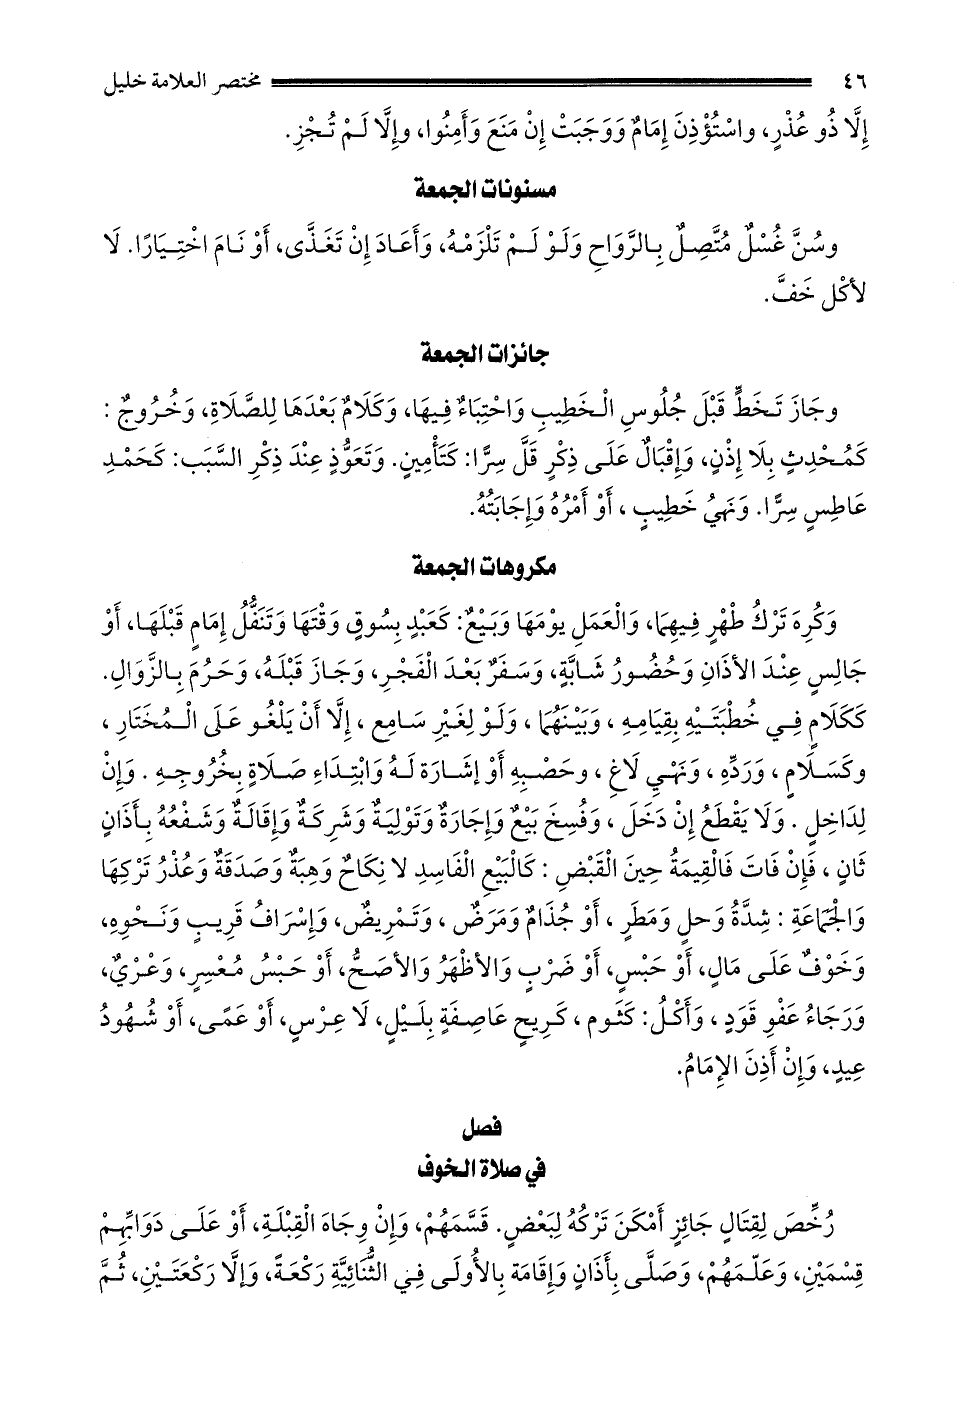 ٤٦ مختصر العلامة خليل
إِلَّا ذُو عُذْرٍ، واسْتُؤْذِنَ إِمَامٌ وَوَجَبَتْ إِنْ مَنَعَ وَأَمِنُوا، وإِلَّا لَمْ تُجْزِ.
مسنونات الجمعة
وسُنَّ غُسْلٌ مُتَّصِلٌ بِالرَّوَاحِ وَلَوْ لَمْ تَلْزَمْهُ، وَأَعَادَ إِنْ تَغَذَّى، أَوْ نَامَ اخْتِيَارًا. لَا
لأكْلٍ خَفَّ.
جائزات الجمعة
وجَازَ تَخَطٍّ قَبْلَ جُلُوسِ الْخَطِيبِ وَاحْتِبَاءٌ فِيهَا، وَكَلَامٌ بَعْدَهَا لِلصَّلَاةِ، وَخُرُوجٌ :
كَمُحْدِثٍ بِلَا إِذْنٍ، وَإِقْبَالٌ عَلَى ذِكْرٍ قَلَّ سِرًّا: كَتَأْمِينٍ. وَتَعَوُّذٍ عِنْدَ ذِكْرِ السَّبَبِ: كَحَمْدِ
عَاطِسٍ سِرًّا. وَنَهْيُ خَطِيبٍ ، أَوْ أَمْرُهُ وَإِجَابَتُهُ.
مكروهات الجمعة
وَكُرِهَ تَرْكُ طُهْرٍ فِيهِمَا، وَالْعَمَلِ يوْمَهَا وَبَيْعٌ: كَعَبْدٍ بِسُوقٍ وَقْتَهَا وَتَنَفُّلُ إِمَامٍ قَبْلَهَا، أَوْ
جَالِسٍ عِنْدَ الأَذَانِ وَحُضُورُ شَابَّةٍ، وَسَفَرٌ بَعْدَ الْفَجْرِ، وَجَازَ قَبْلَهُ، وَحَرُمَ بِالزَّوَالِ.
كَكَلَامٍ فِي خُطْبَتَيْهِ بِقِيَامِهِ ، وَبَيْنَهُمَا ، وَلَوْ لِغَيْرِ سَامِعٍ ، إِلَّا أَنْ يَلْغُو عَلَى الْمُخَتَارِ ،
وكَسَلَامٍ ، وَرَدِّهِ ، وَنَهْيِ لَاغٍ ، وحَصْبِهِ أَوْ إشَارَة لَهُ وَابْتِدَاءِ صَلَاةٍ بِخُرُوجِهِ . وَإِنْ
لِدَاخِلٍ . وَلَا يَقْطَعُ إِنْ دَخَلَ ، وَفُسِخَ بَيْعٌ وَإِجَارَةٌ وَتَوْلِيَةٌ وَشَرِكَةٌ وَإِقَالَةٌ وَشُفْعَةٌ بِأَذَانٍ
ثَانٍ ، فَإِنْ فَاتَ فَالْقِيمَةُ حِينَ الْقَبْضِ : كَالْبَيْعِ الْفَاسِدِ لا نِكَاحٌ وَهِبَةٌ وَصَدَقَةٌ وَعُذْرُ تَرْكِهَا
وَالْجَمَاعَةِ : شِدَّةُ وَحلٍ وَمَطَرٍ ، أَوْ جُذَامٌ وَمَرَضٌ ، وَتَمْرِيضٌ، وَإِسْرَافُ قَرِيبٍ وَنَحْوِهِ،
وَخَوْفٌ عَلَى مَالٍ، أَوْ حَبْسٍ، أَوْ ضَرْبٍ وَالأظْهَرُ وَالأصَحُّ، أَوْ حَبْسُ مُعْسِرٍ، وَعُرْيٌ،
وَرَجَاءُ عَفْوِ قَوَدٍ ، وَأَكْلُ: كَثُومٍ ، كَرِيحٍ عَاصِفَةٍ بِلَيْلٍ، لَا عِرْسٍ، أَوْ عَمًى، أَوْ شُهُودُ
عِيدٍ، وَإِنْ أَذِنَ الإمَامُ.
فصل
في صلاة الخوف
رُخِّصَ لِقِتَالٍ جَائِزٍ أَمْكَنَ تَرْكُهُ لِبَعْضٍ. قَسَّمَهُمْ، وَإِنْ وِجَاهَ الْقِبْلَةِ، أَوْ عَلَى دَوَابِّهِمْ
قِسْمَيْنِ، وَعَلّمَهُمْ، وَصَلَّى بِأَذَانٍ وَإِقَامَة بِالأُولَى فِي الثُّنَائِيَّةِ رَكْعَةً، وَإِلَّا رَكْعَتَيْنِ، ثُمَّ